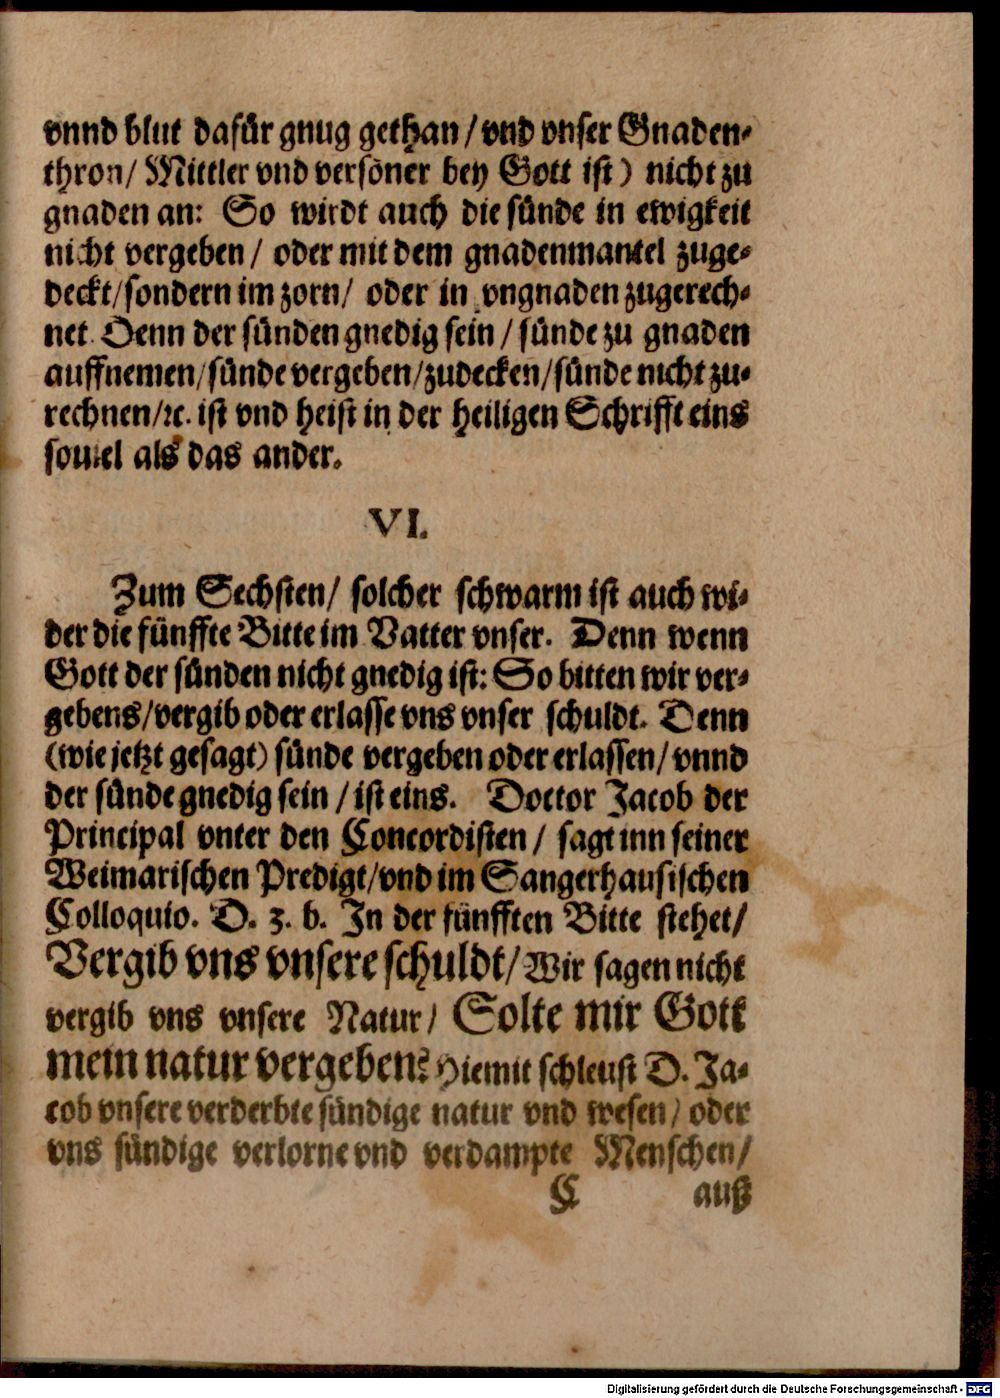 vnnd blut dafür gnug gethan / vnd vnser Gnaden-
thron / Mittler vnd versöner bey Gott ist ) nicht zu
gnaden an: So wirdt auch die sünde in ewigkeit
nicht vergeben / oder mit dem gnadenmantel zuge-
deckt / sondern im zorn / oder in vngnaden zugerech-
net. Denn der sünden gnedig sein / sünde zu gnaden
auffnemen / sünde vergeben / zudecken / sünde nicht zu-
rechnen / ꝛc. ist vnd heist in der heiligen Schrifft eins
souiel als das ander.
VI.
Zum Sechsten / solcher schwarm ist auch wi-
der die fünffte Bitte im Vatter vnser. Denn wenn
Gott der sünden nicht gnedig ist: So bitten wir ver-
gebens / vergib oder erlasse vns vnser schuldt. Denn
(wie jetzt gesagt) sünde vergeben oder erlassen / vnnd
der sünde gnedig sein / ist eins. Doctor Jacob der
Principal vnter den Concordisten / sagt inn seiner
Weimarischen Predigt / vnd im Sangerhausischen
Colloquio. D. 3. b. In der fünfften Bitte stehet /
Vergib vns vnsere schuldt / Wir sagen nicht
vergib vns vnsere Natur / Solte mir Gott
mein natur vergeben? Hiemit schleust D. Ja-
cob vnsere verderbte sündige natur vnd wesen / oder
vns sündige verlorne vnd verdampte Menschen /
C auß
Digitalisierung gefördert durch die Deutsche Forschungsgemeinschaft - DFG